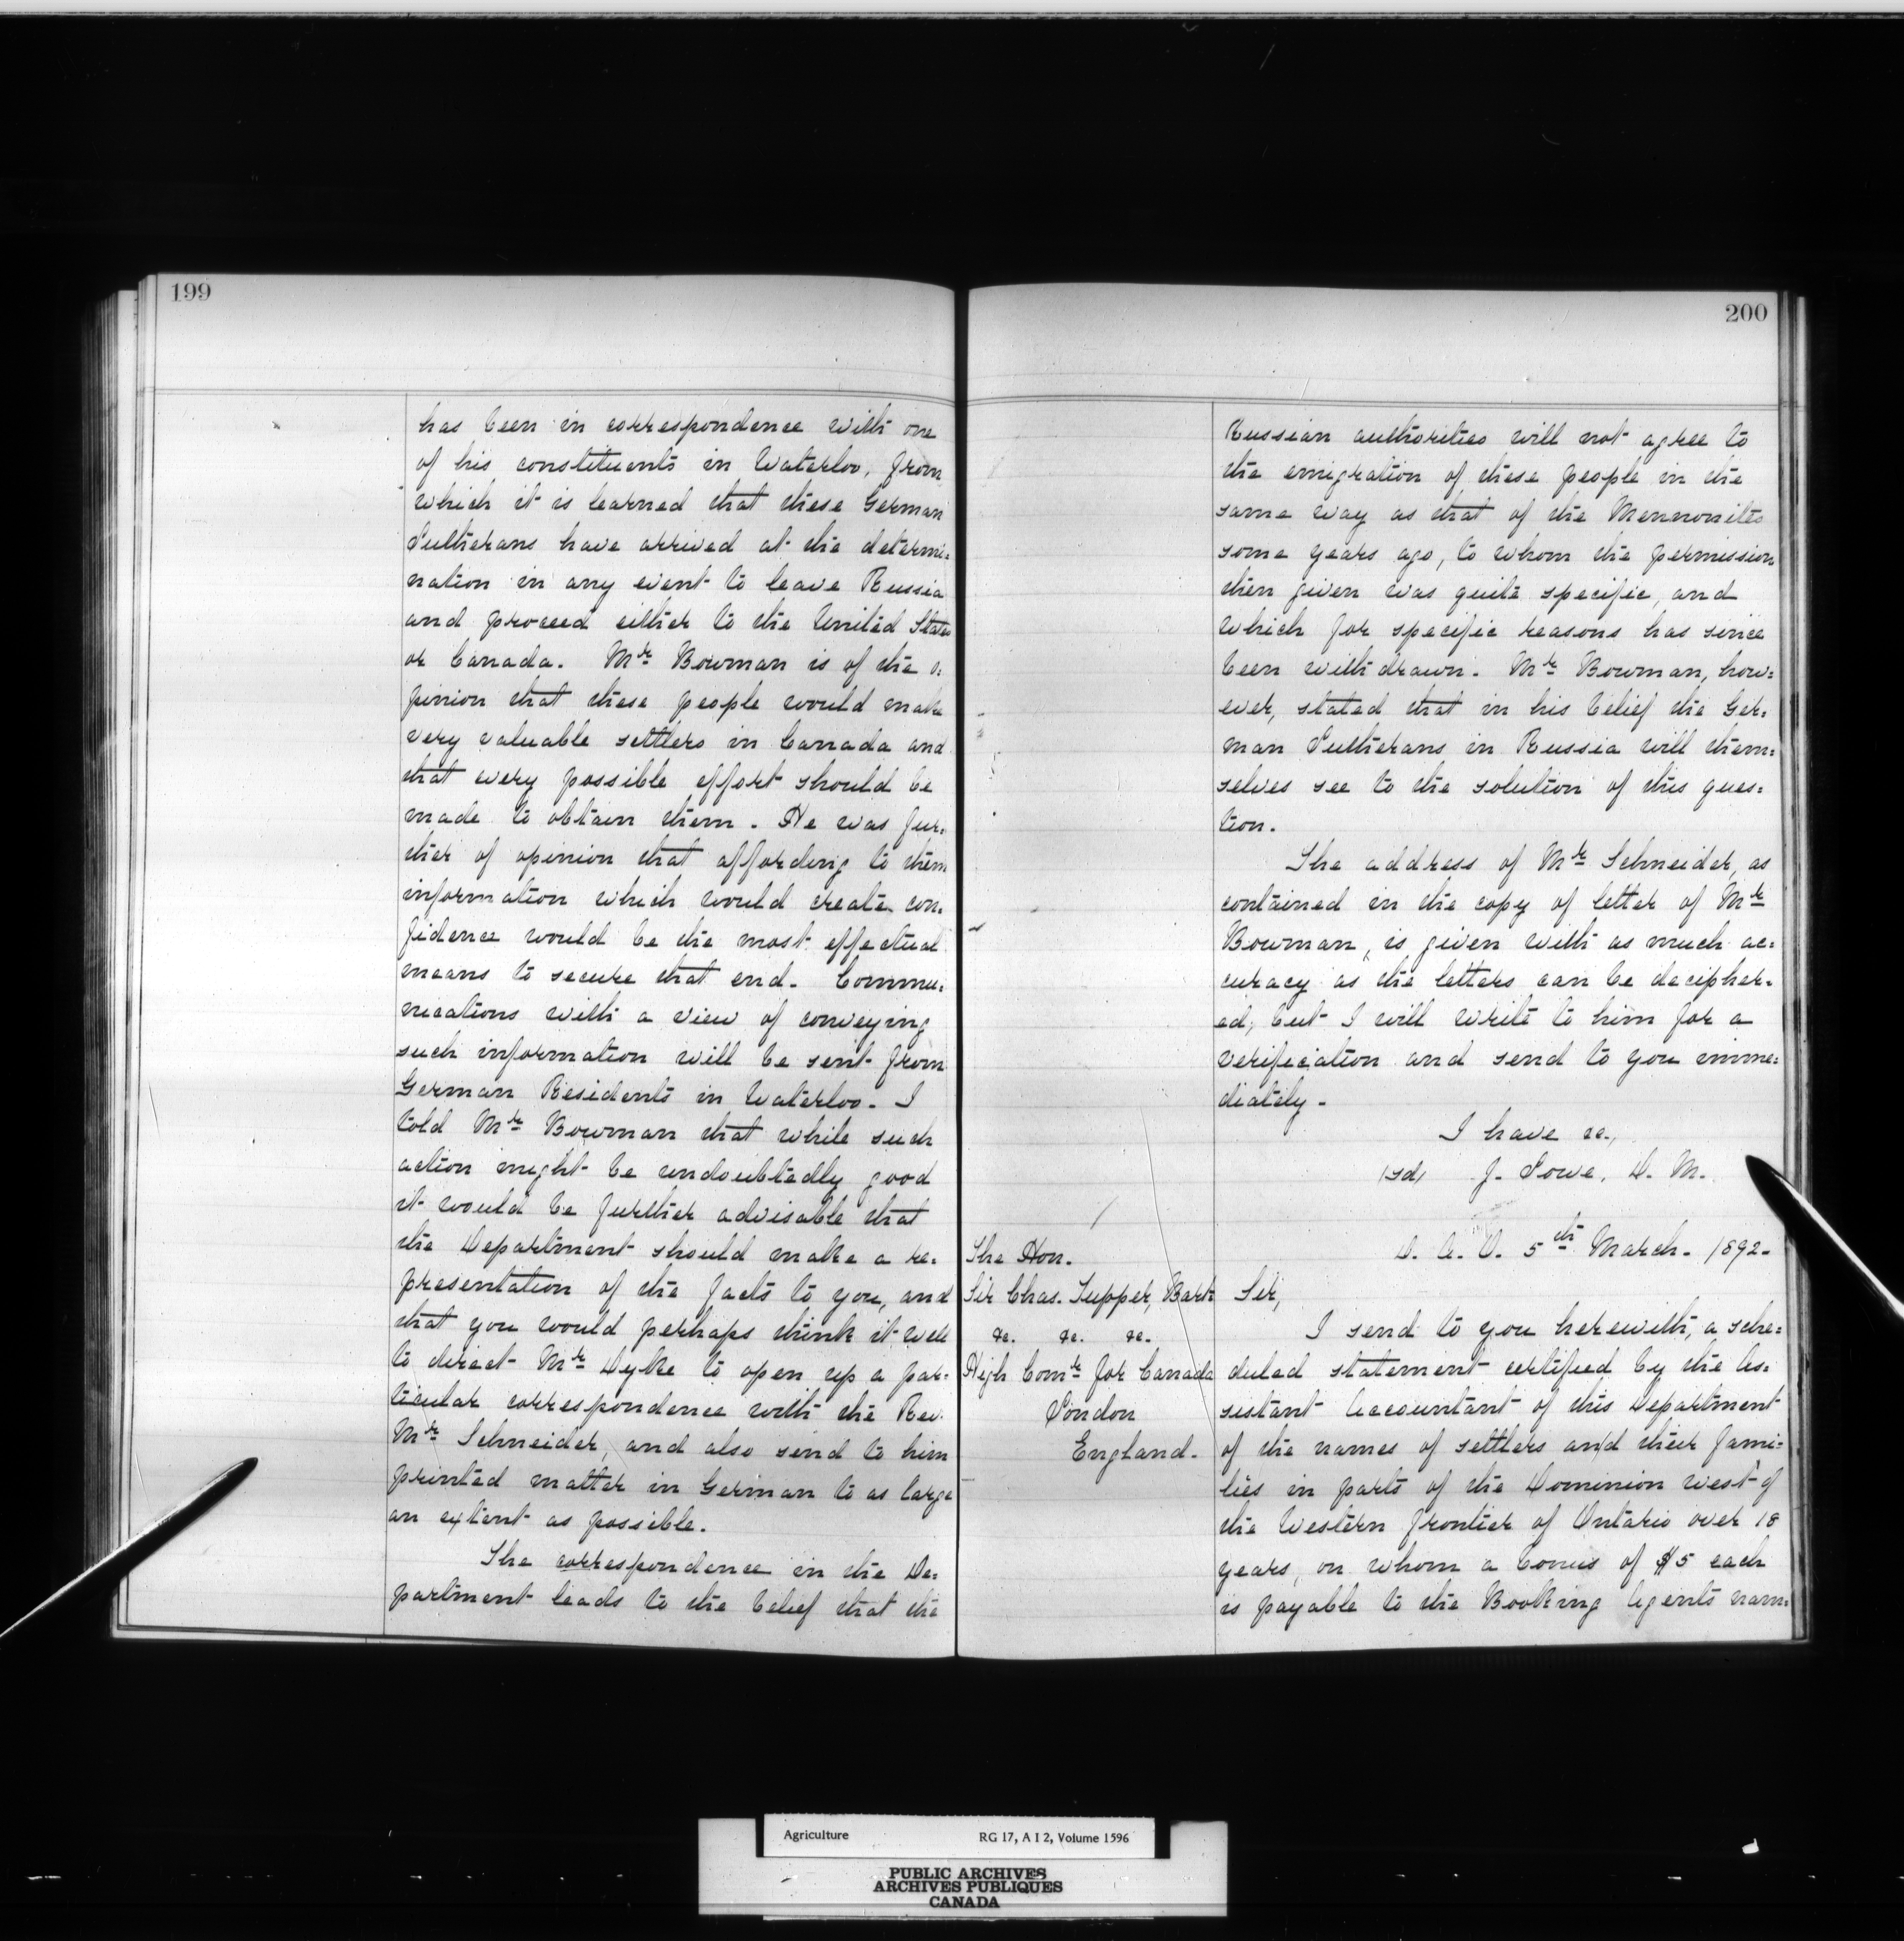 199
has been in correspondence with one
of his constituents in Waterloo, from
which it is learned that these German
Lutherans have arrived at the determi=
nation in any event to leave Russia
and proceed either to the United States
or Canada. Mr Bowman is of the o=
pinion that these people would make
very valuable settlers in Canada and
that every possible effort should be
made to obtain them. He was fur=
ther of opinion that affording to them
information which would create con=
fidence would be the most effectual
means to secure that end. Commu=
nications with a view of conveying
such information will be sent from
German Residents in Waterloo. I
told Mr Bowman that while such
action might be undoubtedly good
it would be further advisable that
the Department should make a re=
presentation of the facts to you, and
that you would perhaps think it well
to direct Mr Dyke to open up a par=
ticular correspondence with the Rev.
Mr Schneider, and also send to him
printed matter in German to as large
an extent as possible.
The correspondence in the De=
partment leads to the belief that the
200
Russian authorities will not agree to
the emigration of these people in the
same way as that of the Mennonites
some years ago, to whom the permission
then given was quite specific, and
which for specific reasons has since
been withdrawn. Mr Bowman, how=
ever, stated that in his belief the Ger=
man Lutherans in Russia will them=
selves see to the solution of this ques=
tion.
The address of Mr Schneider, as
contained in the copy of letter of Mr
Bowman, is given with as much ac=
curacy as the letters can be decipher=
ed; but I will write to him for a
verification and send to you imme=
diately.
I have &c.,
(sd) J. Lowe, D. M.
D. A. O. 5th March. 1892.
The Hon.
Sir Chas. Tupper, Bart
&c. &c. &c.
High Comr for Canada
London
England.
Sir,
I send to you herewith, a sche=
duled statement certified by the As=
sistant Accountant of this Department
of the names of settlers and their fami=
lies in parts of the Dominion west of
the Western frontier of Ontario over 18
years, on whom a bonus of $5 each
is payable to the Booking Agents nam=
Agriculture RG 17, A I 2, Volume 1596
PUBLIC ARCHIVES
ARCHIVES PUBLIQUES
CANADA